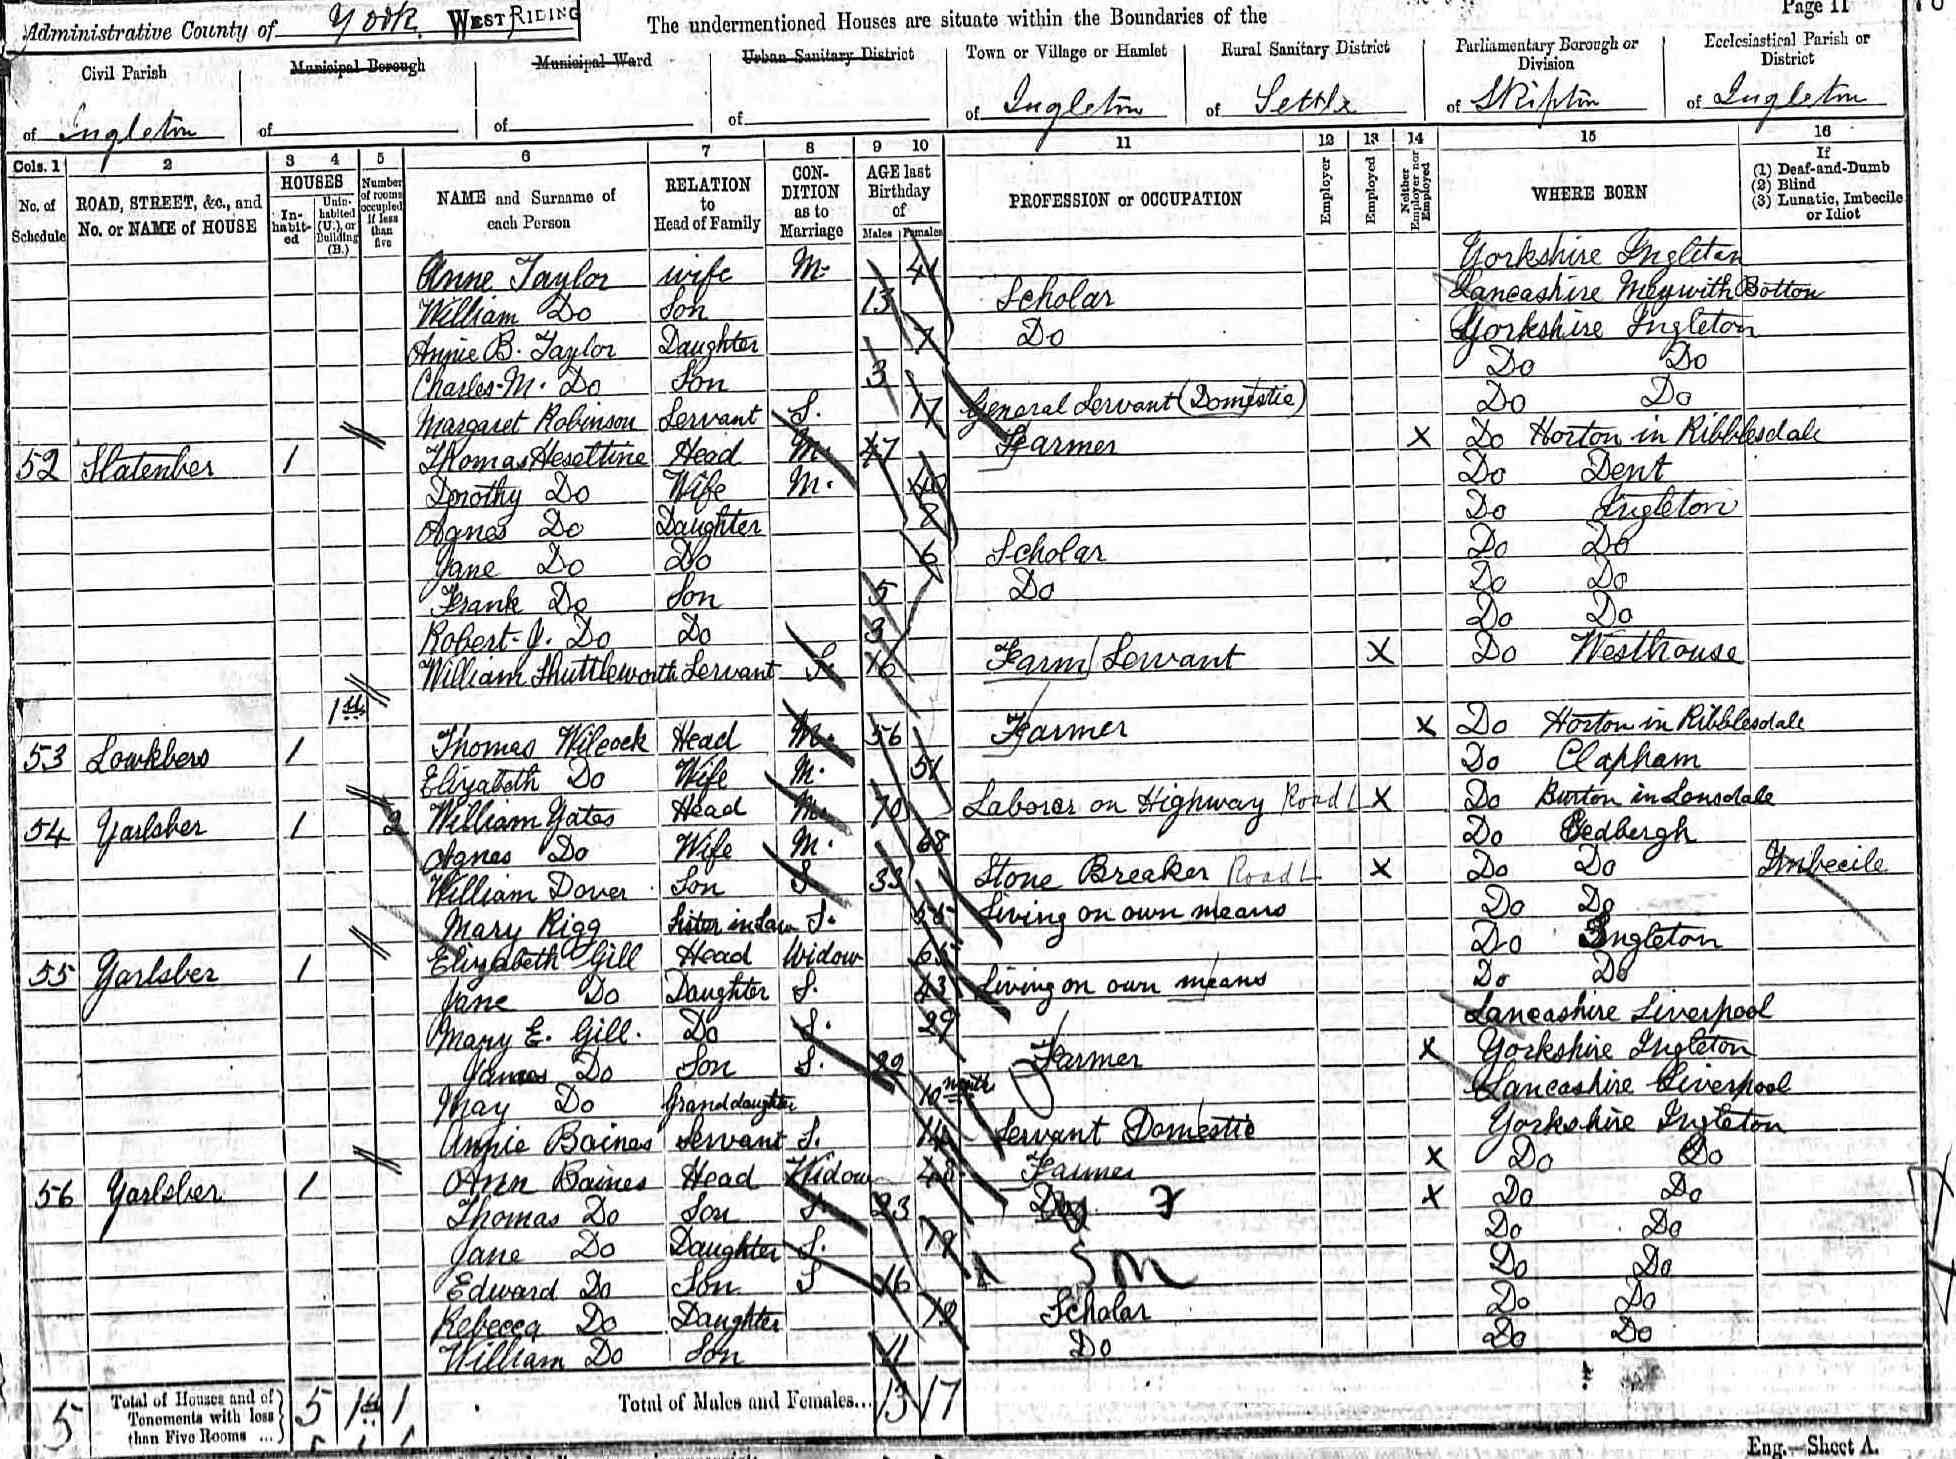 Administrative County of York. WEST RIDING The undermentioned Houses are situate within the Boundaries of the Page 11
Civil Parish Municipal Borough Municipal Ward Urban Sanitary District Town or Village or Hamlet Rural Sanitary District Parliamentary Borough or Division Ecclesiastical Parish or District
of Ingleton of of of of Ingleton of Settle of Skipton of Ingleton
Cols. 1 2 3 4 5 6 7 8 9 10 11 12 13 14 15 16
No. of Schedule ROAD, STREET, &c., and No. or NAME of HOUSE HOUSES In-habit-ed Unin-habited (U.), or Building (B.) Number of rooms occupied if less than five NAME and Surname of each Person RELATION to Head of Family CON-DITION as to Marriage AGE last Birthday of Males Females PROFESSION or OCCUPATION Employer Employed Neither Employer nor Employed WHERE BORN If (1) Deaf-and-Dumb (2) Blind (3) Lunatic, Imbecile or Idiot
Anne Taylor wife M. 41 Yorkshire Ingleton
William Do Son 13 Scholar Lancashire Botton
Annie B. Taylor Daughter 7 Do Yorkshire Ingleton
Charles M. Do Son 3 Do Do
Margaret Robinson Servant S. 17 General Servant (Domestic) Do Do
52 Slatenber 1 Thomas Heseltine Head M. 47 Farmer X Do Horton in Ribblesdale
Dorothy Do Wife M. 40 Do Dent
Agnes Do Daughter 8 Do Ingleton
Jane Do Do 6 Scholar Do Do
Frank Do Son 5 Do Do Do
Robert J. Do Do 3 Do Do
William Shuttleworth Servant S. 16 Farm Servant X Do Westhouse
53 Lowkbers 1 Thomas Wilcock Head M. 56 Farmer X Do Horton in Ribblesdale
Elizabeth Do Wife M. 51 Do Clapham
54 Yarlsber 1 2 William Yates Head M. 70 Laborer on Highway Road L X Do Burton in Lonsdale
Agnes Do Wife M. 68 Do Sedbergh
William Dover Son S 33 Stone Breaker Road L X Do Do Imbecile
Mary Rigg Sister in Law S. 55 Living on own means Do Do
55 Yarlsber 1 Elizabeth Gill Head Widow 65 Do Ingleton
Jane Do Daughter S. Living on own means Do Do
Mary E. Gill. Do S. 29 Lancashire Liverpool
James Do Son S. Farmer X Yorkshire Ingleton
May Do Grand daughter 10 Lancashire Liverpool
Annie Baines Servant S. 14 Servant Domestic Yorkshire Ingleton
56 Yarlsber 1 Ann Baines Head Widow 48 Farmer X Do Do
Thomas Do Son S. 23 Do X Do Do
Jane Do Daughter S. 19 Do Do
Edward Do Son S 16 S M Do Do
Rebecca Do Daughter 12 Scholar Do Do
William Do Son 11 Do Do Do
5 Total of Houses and of Tenements with less than Five Rooms ... 5 1 1 Total of Males and Females... 13 17
Eng.—Sheet A.